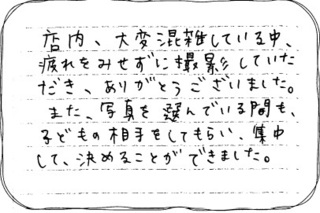 店内、大変混雑している中、
疲れをみせずに撮影していた
だき、ありがとうございました。
また、写真を選んでいる間も、
子どもの相手をしてもらい、集中
して、決めることができました。